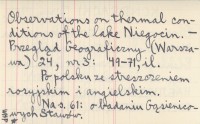 Observations on thermal con-
ditions of the lake Niegocin. —
Przegląd Geograficzny (Warsza-
wa) 24, nr 3: 49-71, il.
Po polsku ze streszczeniem
rosyjskim i angielskim.
Na s. 61: o badaniu Gąsienico-
wych Stawów.